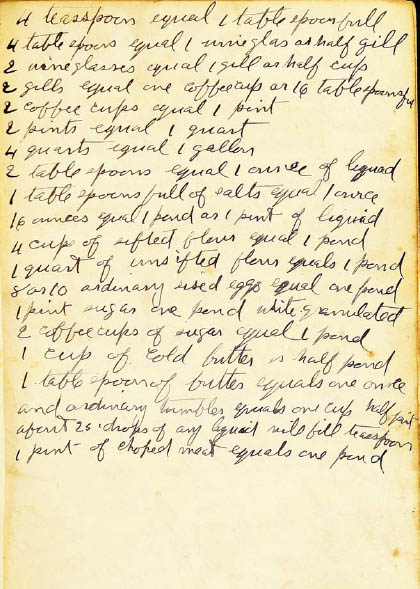 4 teasspoons equal 1 tablespoonfull
4 tablespoons equal 1 wineglas or half gill
2 wineglasses equal 1 gill or half cup
2 gills equal one coffeecup or 16 tablespoonsfu
2 coffee cups equal 1 pint
2 pints equal 1 quart
4 quarts equal 1 gallon
2 tablespoons equal 1 ounce of liquad
1 tablespoonsfull of salts equal 1 ounce
16 ounces equal 1 pond or 1 pint of liquid
4 cups of sifted flour equal 1 pond
1 quart of unsifted flour equals 1 pond
8 or 10 ordinary sised eggs equal one pond
1 pint sugar one pond white granulated
2 coffeecups of sugar equal 1 pond
1 cup of cold butter is half pond
1 tablespoon of butter equals one ounce
and ordinary tumbler equals one cup half pint
about 25 drops of any liquid will fill teaspoon
1 pint of choped meat equals one pond